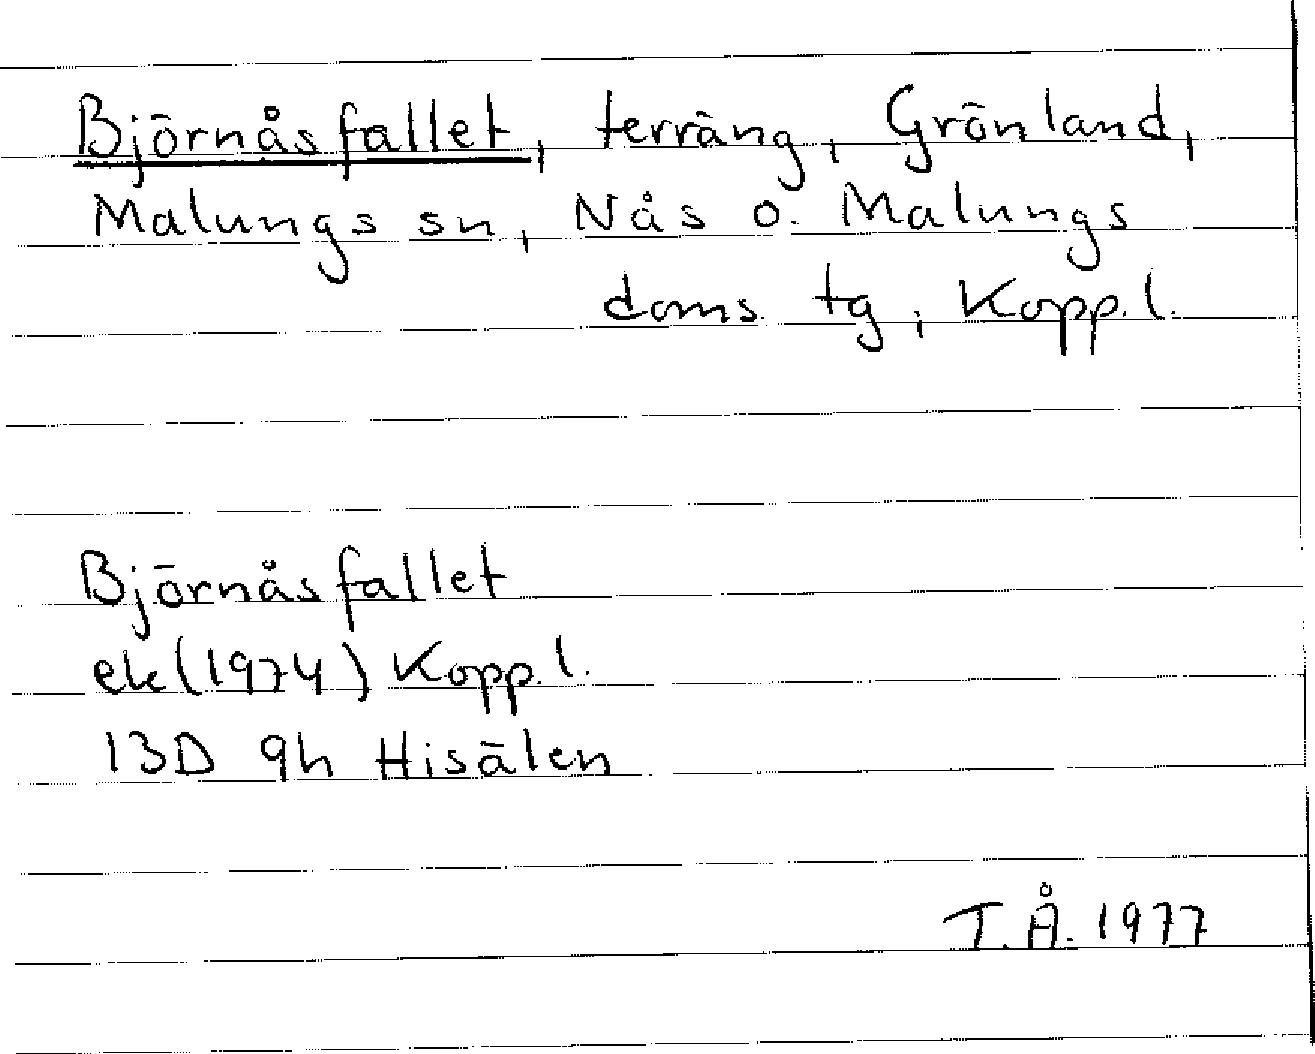 Björnåsfallet, terräng, Grönland,
Malungs sn, Nås o. Malungs
doms. tg, Kopp. l.
Björnåsfallet
ek (1974) Kopp. l.
13D 9h Hisälen
T.Å. 1977